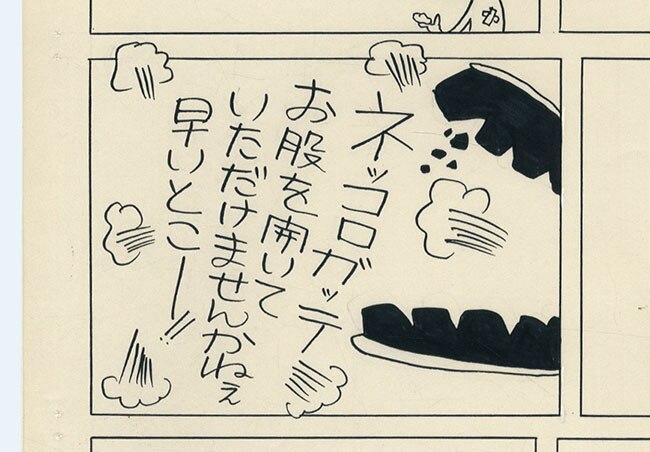 ネッコロガッテ
お股を開いて
いただけませんかねぇ
早いとこー!!